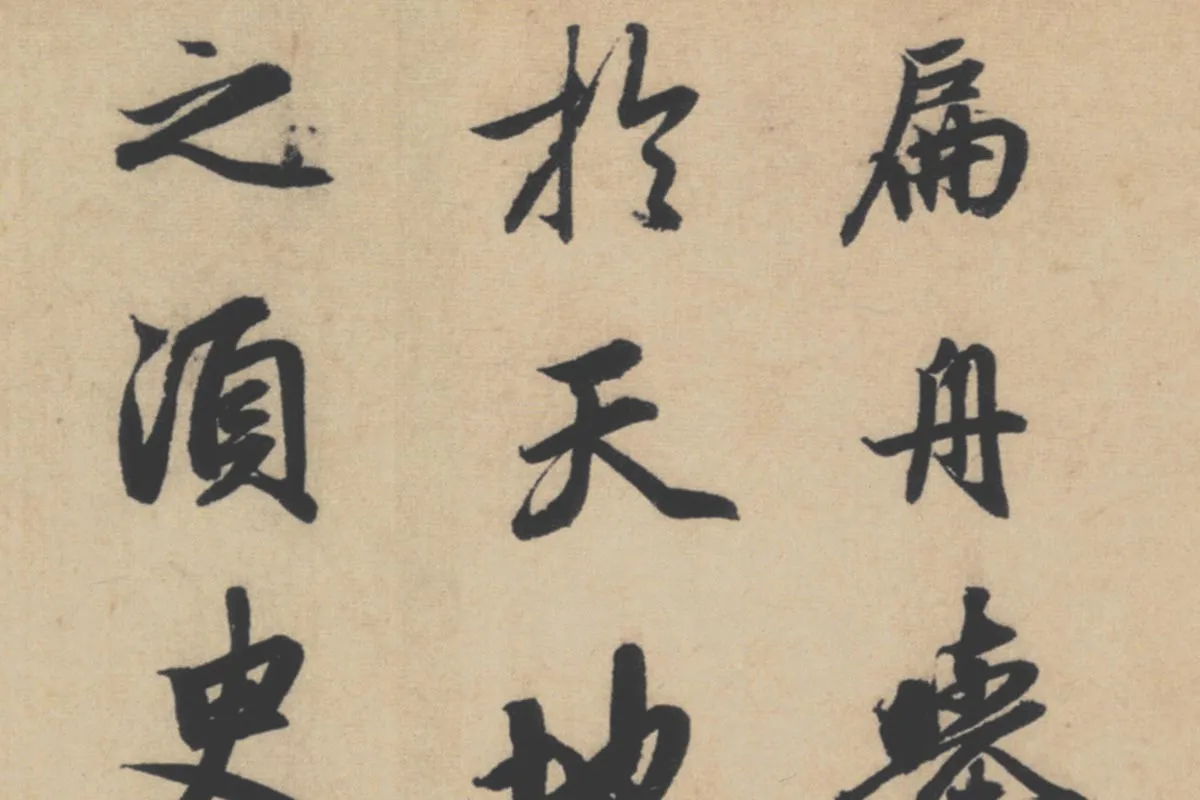 扁舟舉
於天地
之須臾